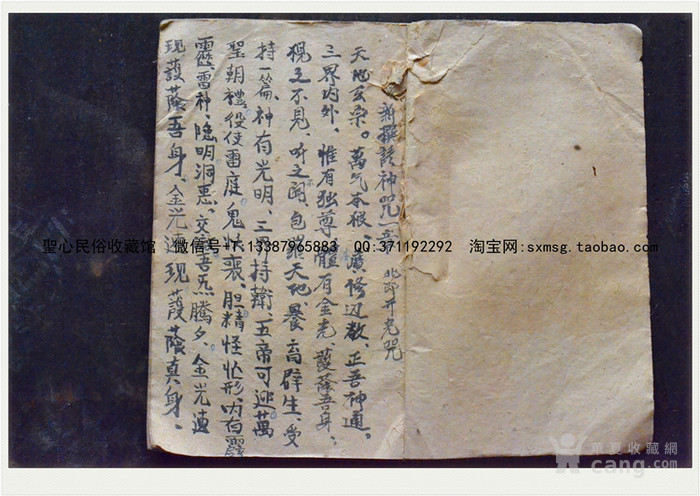 新撰諸神咒 北郊开光咒
天地玄宗。萬气本根、广修辺敖、正吾神通。
三界内外、惟有独尊、體有金光、護蔭吾身、
視之不見、听之闻、包羅天地、養育群生、受
持一篇、神有光明、三界持衛、五帝可迎、萬
聖朝禮、役使雷庭、鬼妖喪、胆精怪忙形、内有霹
靂、雷神、隐明洞惠、交吾炁騰夕、金光速
现護蔭吾身、金光速现護蔭真身、
聖心民俗收藏馆 微信号+T:13387965883 QQ:371192292 淘宝网:sxmsg.taobao.com
華夏收藏網
cang.com